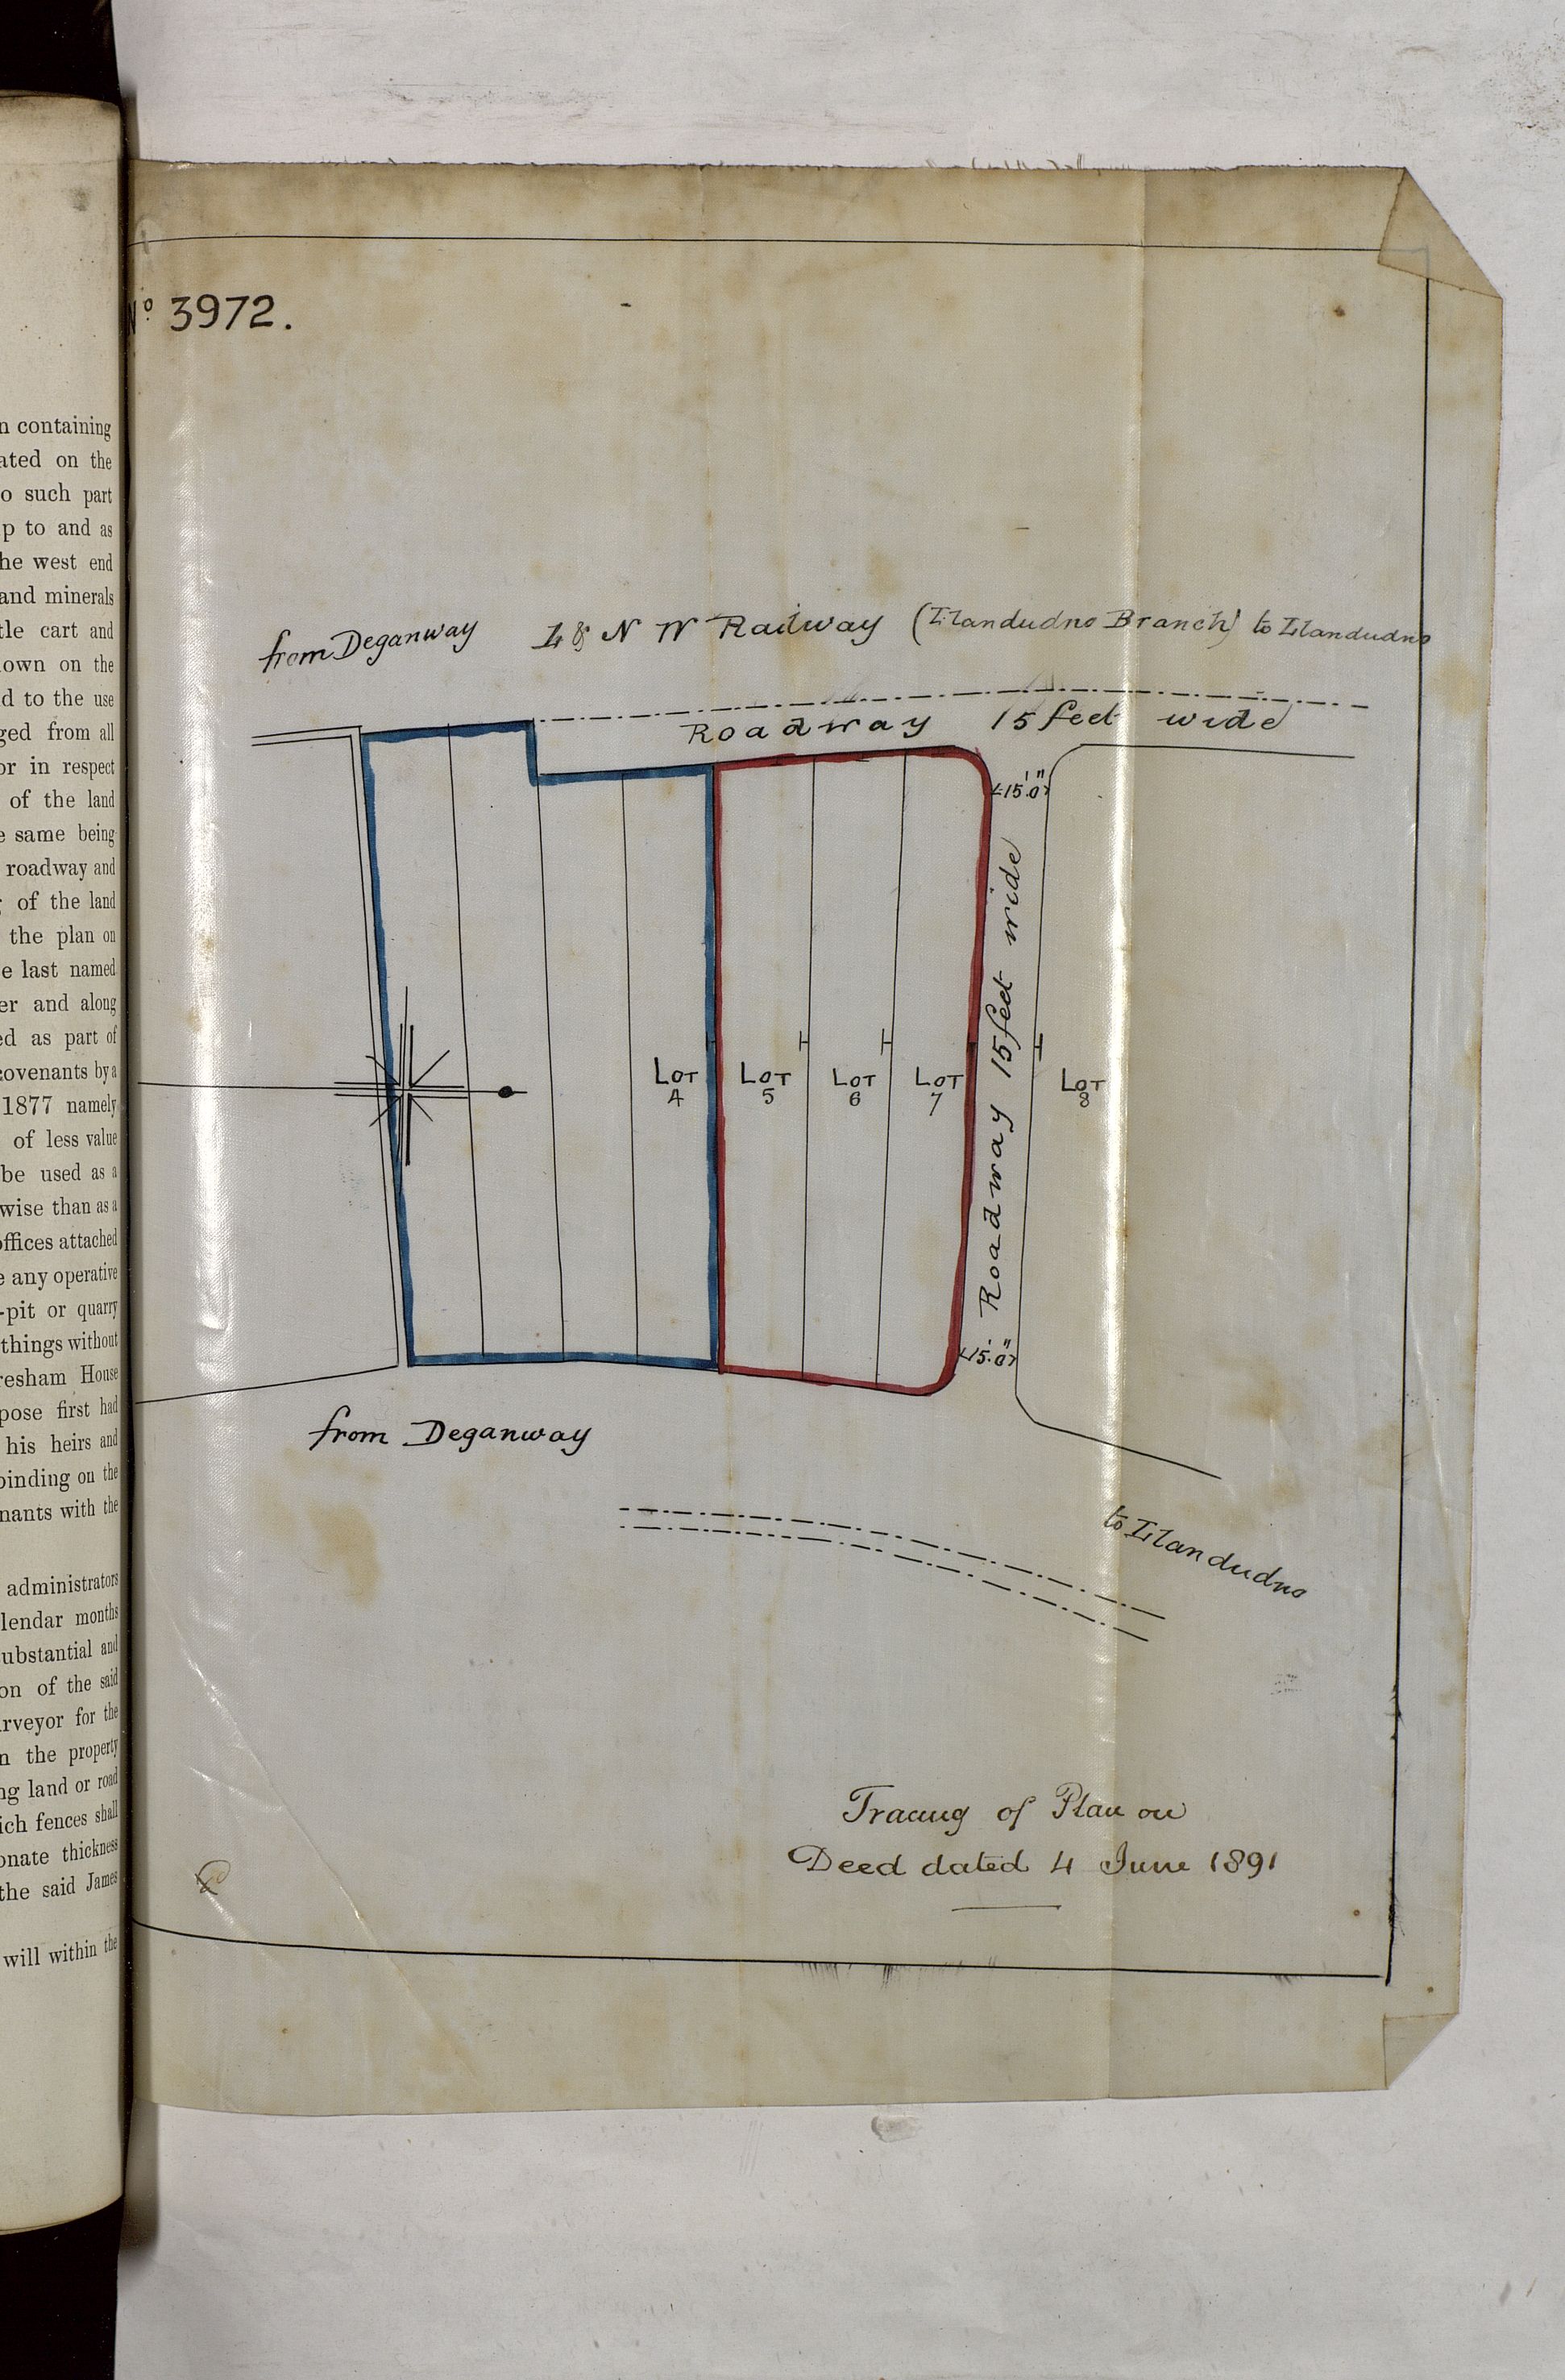 n containing
ated on the
o such part
p to and as
he west end
and minerals
tle cart and
own on the
d to the use
ged from all
or in respect
of the land
e same being
roadway and
of the land
the plan on
e last named
er and along
ed as part of
covenants by a
1877 namely
of less value
be used as a
wise than as a
offices attached
e any operative
-pit or quarry
things without
resham House
pose first had
his heirs and
binding on the
nants with the
administrators
lendar months
ubstantial and
on of the said
urveyor for the
n the property
ng land or road
ich fences shall
onate thickness
the said James
will within the
No 3972.
from Deganway L & N W Railway (Llandudno Branch) to Llandudno
Roadway 15 feet wide
15'.0"
Roadway 15 feet wide
LOT 4
LOT 5
LOT 6
LOT 7
LOT 8
15'.0"
from Deganway
to Llandudno
Tracing of Plan on
Deed dated 4 June 1891